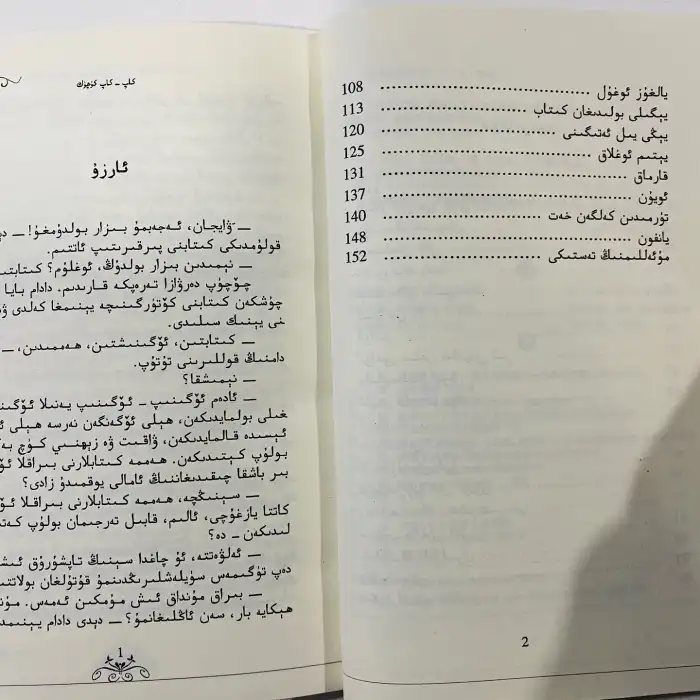 يالغۇز ئوغۇل ........................................ 108
يېگىلى بولىدىغان كىتاب ........................... 113
يېڭى يىل ئەتىگىنى ................................ 120
يېتىم ئوغلاق ........................................ 125
قارماق ................................................ 131
ئويۇن .................................................. 137
تۈرمىدىن كەلگەن خەت .............................. 140
يانفون ................................................ 148
مۇئەللىمنىڭ تەستىكى .............................. 152
2
ئارزۇ
— ۋايجان، ئەجەبمۇ بىزار بولدۇمغۇ! —
قولۇمدىكى كىتابنى پىرقىرىتىپ ئاتتىم.
— نېمىدىن بىزار بولدۇڭ، ئوغلۇم؟
چۆچۈپ دەرۋازا تەرەپكە قارىدىم. دادام بايا
چۈشكەن كىتابنى كۆتۈرگىنىچە يېنىمغا كەلدى
نى يېنىك سىلىدى.
— كىتابتىن، ئۆگىنىشتىن، ھەممىدىن، —
دامنىڭ قوللىرىنى تۇتۇپ.
— نېمىشقا؟
— ئادەم ئۆگىنىپ - ئۆگىنىپ يەنىلا
غىلى بولمايدىكەن، ھېلى ئۆگەنگەن نەرسە ھېلى
ئېسىدە قالمايدىكەن، ۋاقىت ۋە زېھنىي كۈچ
بولۇپ كېتىدىكەن. ھەممە كىتابلارنى بىراقلا
بىر باشقا چىقىدىغاننىڭ ئامالى يوقمىدۇ زادى؟
— سېنىڭچە، ھەممە كىتابلارنى بىراقلا
كاتتا يازغۇچى، ئالىم، قابىل تەرجىمان بولۇپ
لىدىكەن - دە؟
— ئەلۋەتتە، ئۇ چاغدا سېنىڭ تاپشۇرۇق
دەپ تۈگىمەس سۆيلەشلىرىڭدىنمۇ قۇتۇلغان
— بىراق مۇنداق ئىش مۇمكىن ئەمەس.
ھېكايە بار، سەن ئاڭلىغانمۇ؟ — دېدى دادام
1